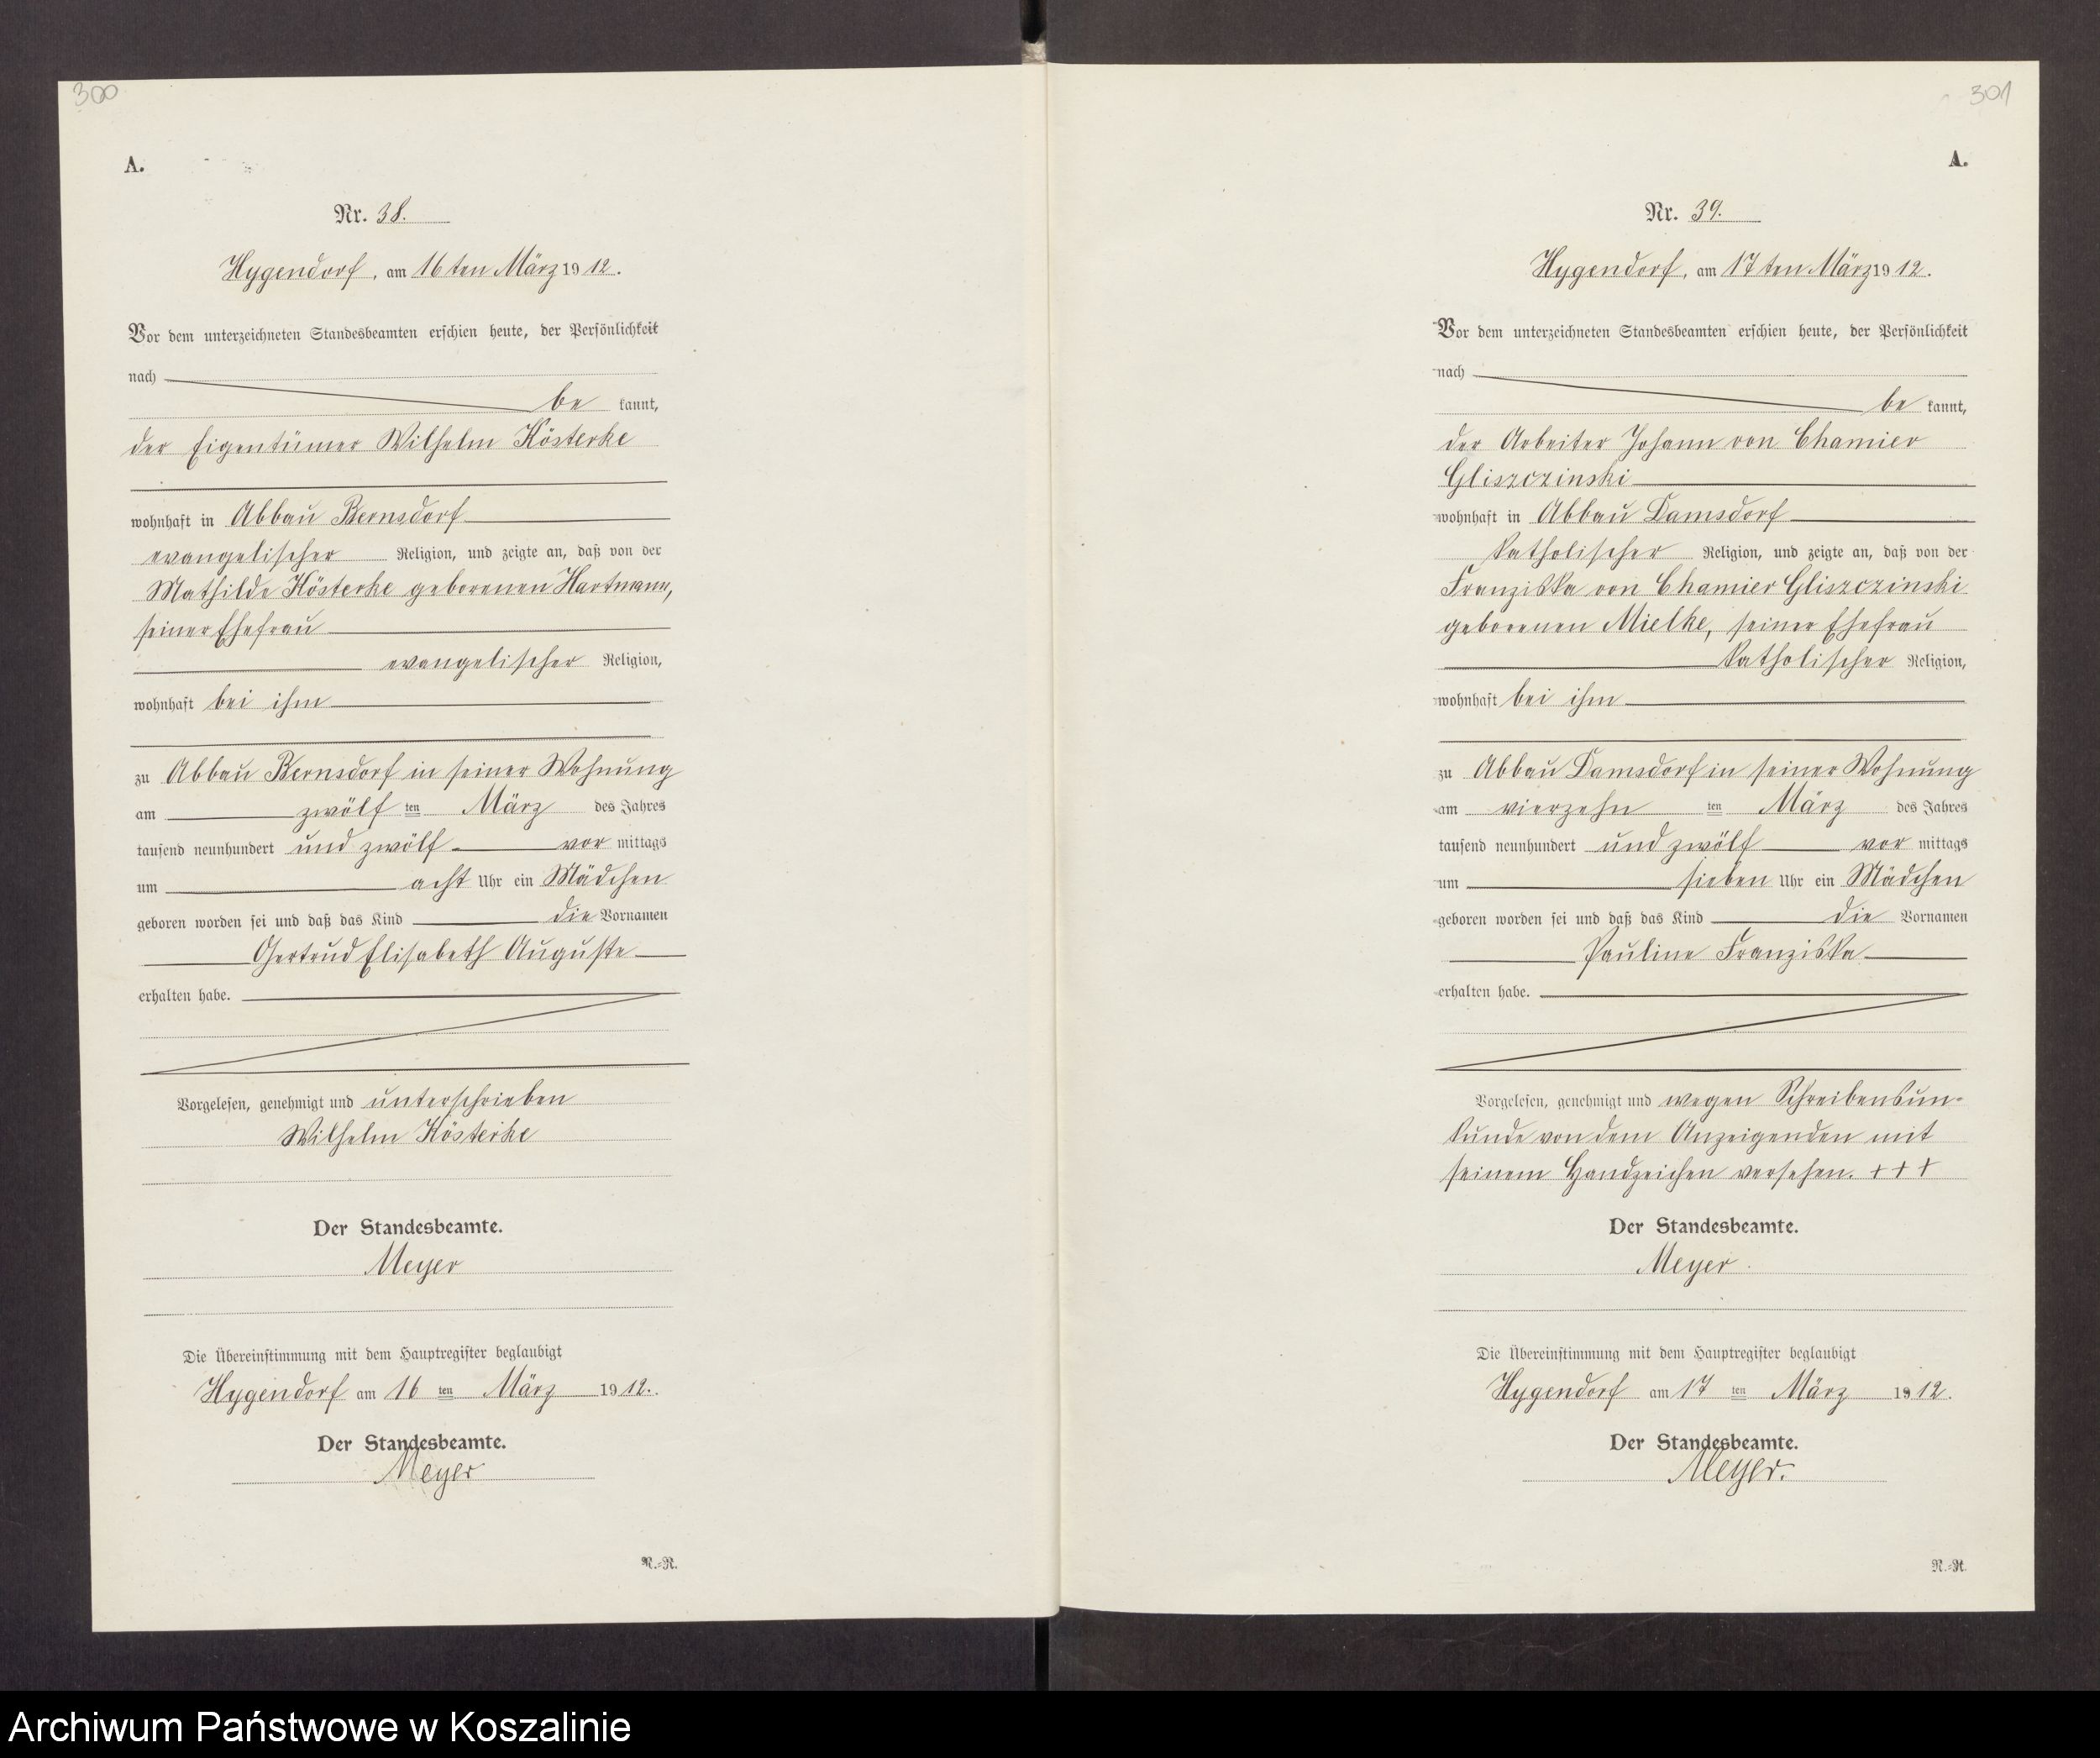 300
A.
Nr. 38.
Hygendorf, am 16ten März 1912.
Vor dem unterzeichneten Standesbeamten erschien heute, der Persönlichkeit
nach
be kannt,
der Eigentümer Wilhelm Kösterke
wohnhaft in Abbau Bernsdorf
evangelischer Religion, und zeigte an, daß von der
Mathilde Kösterke geborenen Hartmann,
seiner Ehefrau
evangelischer Religion,
wohnhaft bei ihm
zu Abbau Bernsdorf in seiner Wohnung
am zwölf ten März des Jahres
tausend neunhundert und zwölf vor mittags
um acht Uhr ein Mädchen
geboren worden sei und daß das Kind die Vornamen
Gertrud Elisabeth Auguste
erhalten habe.
Vorgelesen, genehmigt und unterschrieben
Wilhelm Kösterke
Der Standesbeamte.
Meyer
Die Übereinstimmung mit dem Hauptregister beglaubigt
Hygendorf am 16 ten März 1912.
Der Standesbeamte.
Meyer
R.-R.
301
A.
Nr. 39.
Hygendorf, am 17ten März 1912.
Vor dem unterzeichneten Standesbeamten erschien heute, der Persönlichkeit
nach
be kannt,
der Arbeiter Johann von Chamier
Gliszczinski
wohnhaft in Abbau Damsdorf
katholischer Religion, und zeigte an, daß von der
Franziska von Chamier Gliszczinski
geborenen Mielke, seiner Ehefrau
katholischer Religion,
wohnhaft bei ihm
zu Abbau Damsdorf in seiner Wohnung
am vierzehn ten März des Jahres
tausend neunhundert und zwölf vor mittags
um sieben Uhr ein Mädchen
geboren worden sei und daß das Kind die Vornamen
Pauline Franziska
erhalten habe.
Vorgelesen, genehmigt und wegen Schreibensun-
kunde von dem Anzeigenden mit
seinem Handzeichen versehen. +++
Der Standesbeamte.
Meyer.
Die Übereinstimmung mit dem Hauptregister beglaubigt
Hygendorf am 17 ten März 1912.
Der Standesbeamte.
Meyer.
R.-R.
Archiwum Państwowe w Koszalinie